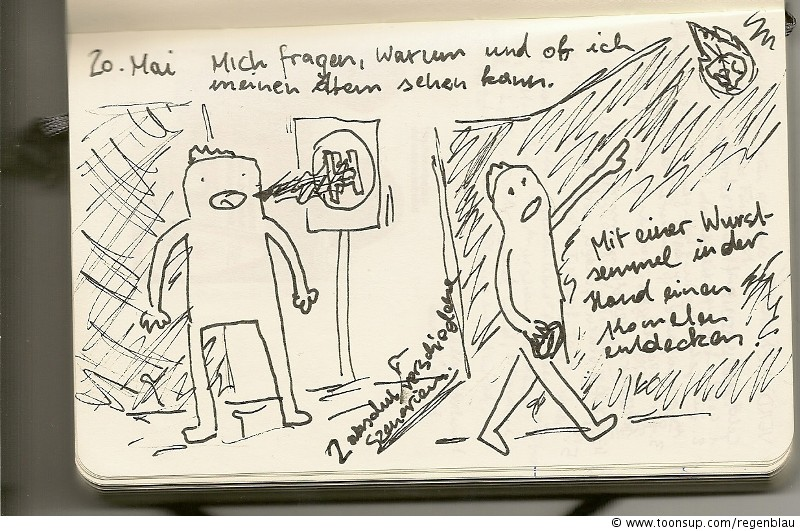 20. Mai Mich fragen, Warum und ob ich
meinen Atem sehen kann.
H
Mit einer Wurst-
semmel in der
Hand einen
Kometen
entdecken!
2 absolut verschiedene
Szenarien.
© www.toonsup.com/regenblau